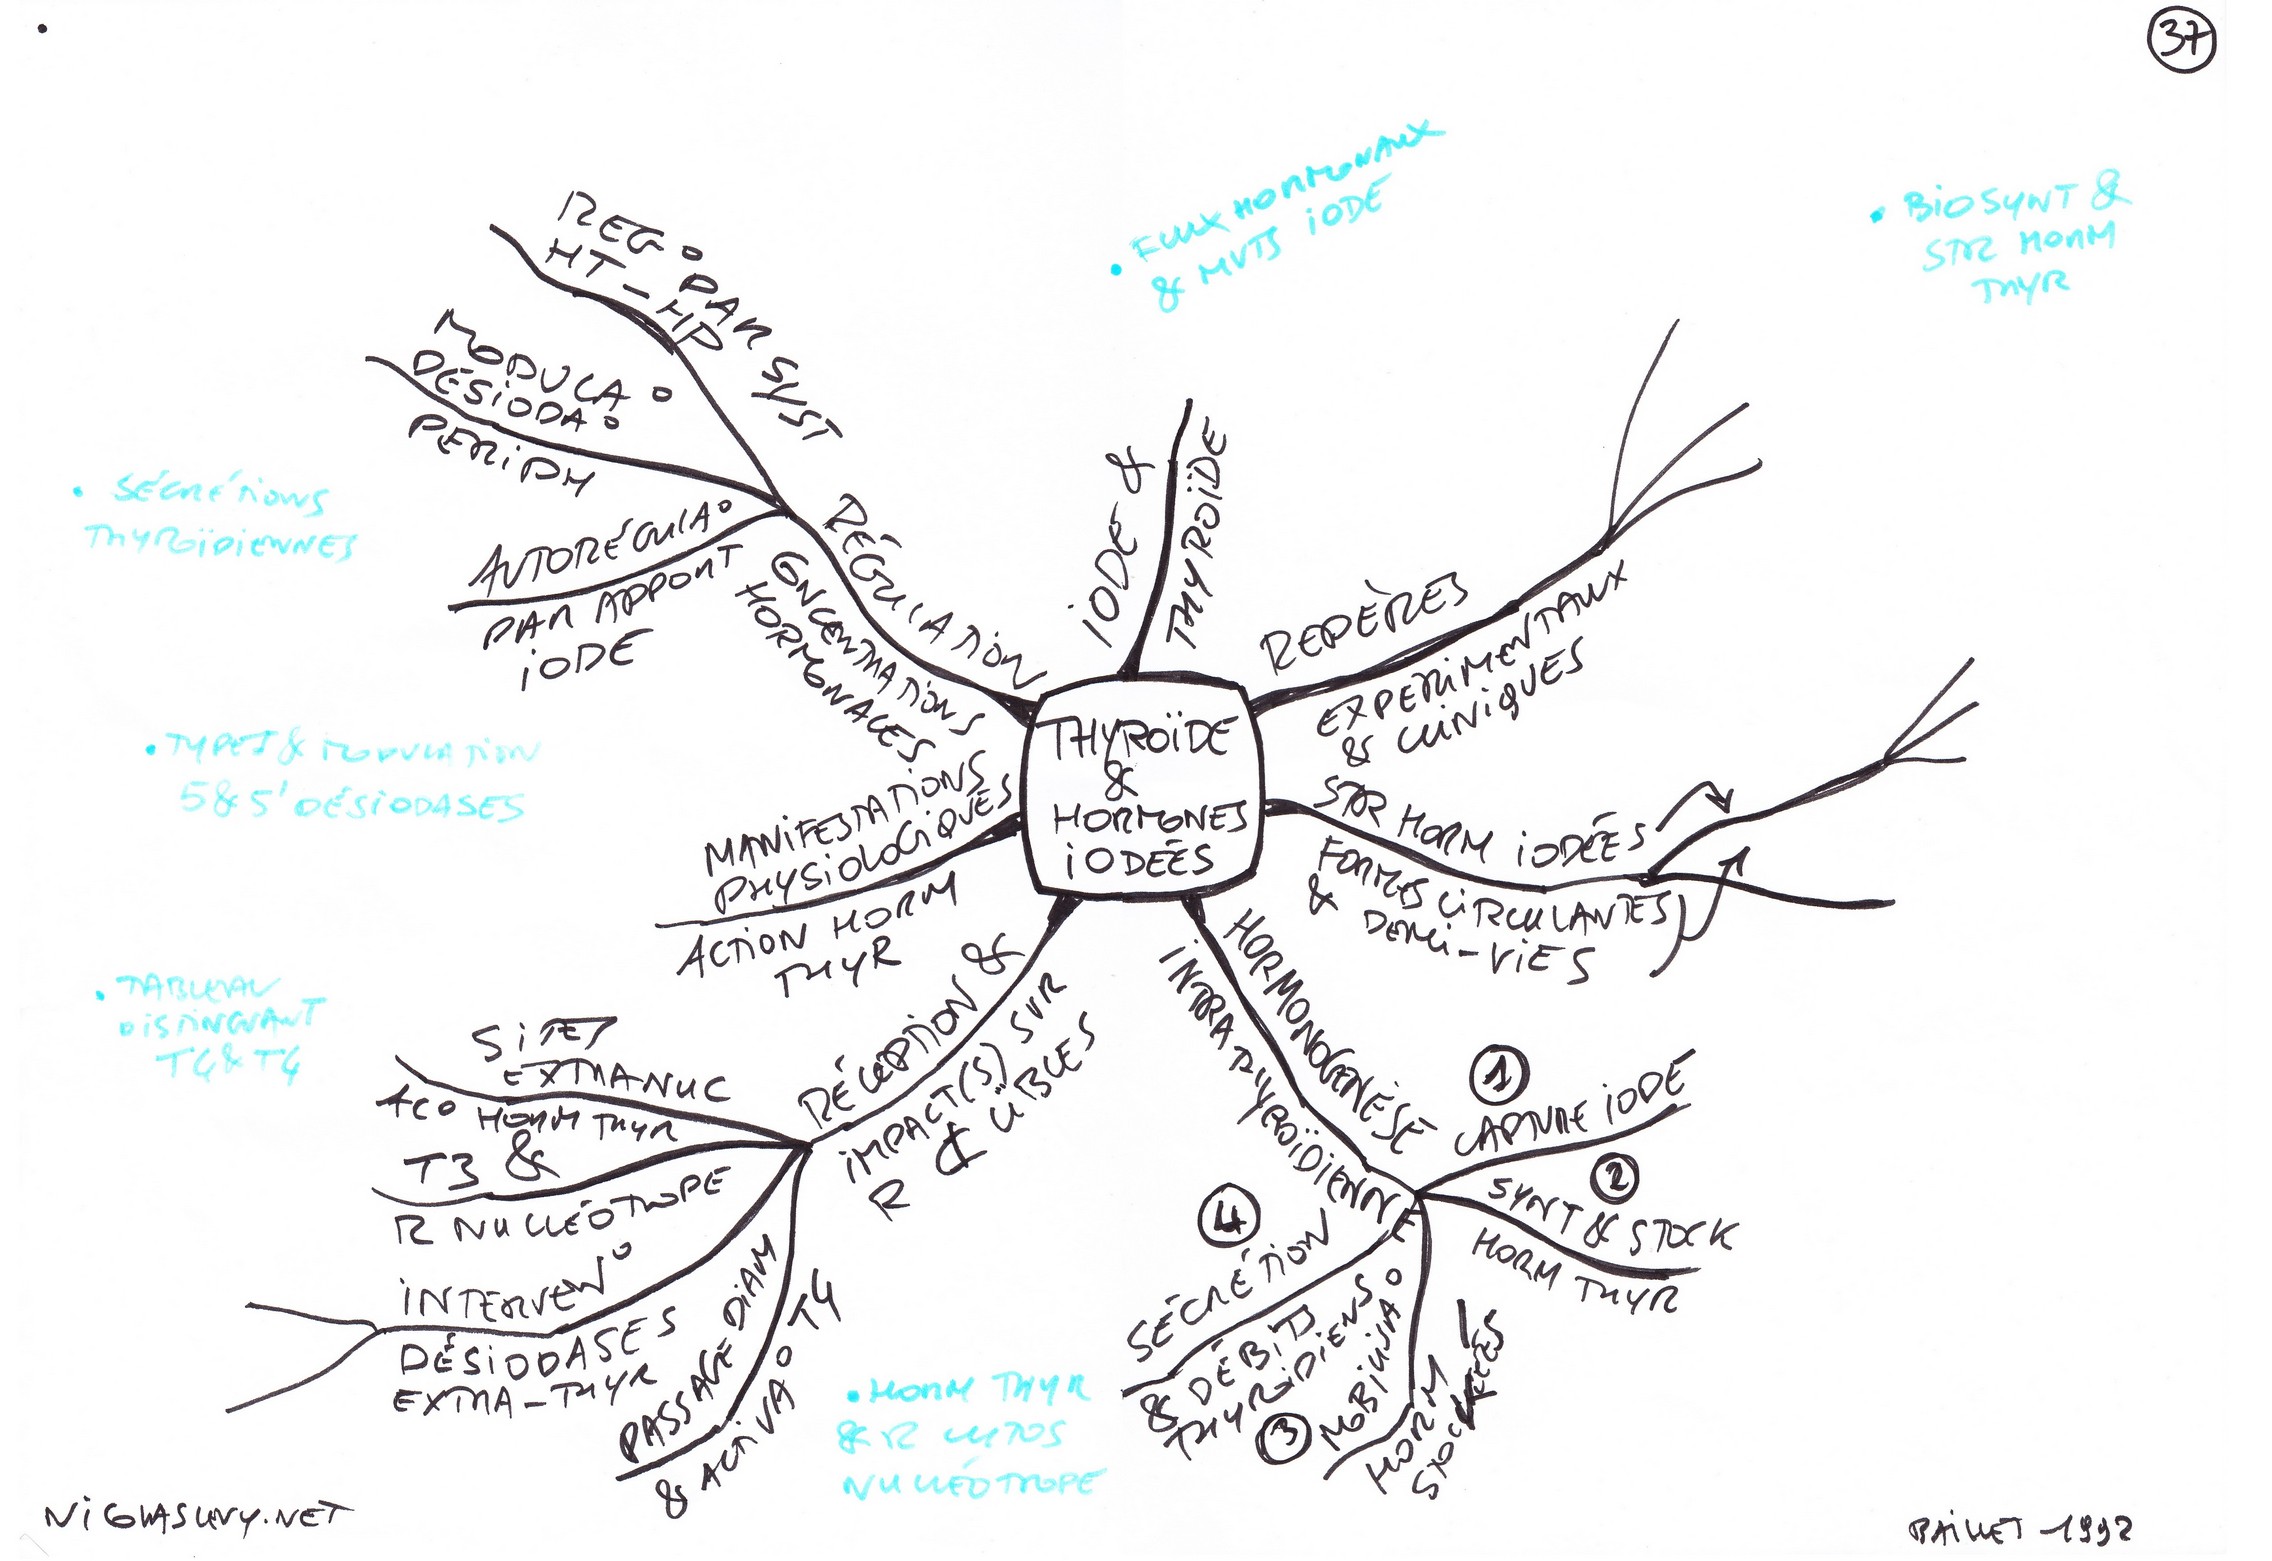 37
FLUX HORMONAUX
& MVTS IODE
BIOSYNT &
STR HORM
THYR
REG° PAR SYST
HT-HP
MODULA°
DÉSIODA°
PERIPH
AUTORÉGULA°
PAR APPORT
IODE
RÉGULATION
CONCENTRATIONS
HORMONALES
IODE &
THYROÏDE
REPÈRES
EXPERIMENTAUX
& CLINIQUES
SÉCRÉTIONS
THYROÏDIENNES
THYROÏDE
&
HORMONES
IODÉES
TYPES & MODULATION
5 & 5' DÉSIODASES
MANIFESTATIONS
PHYSIOLOGIQUES
ACTION HORM
THYR
STR HORM IODÉES
FORMES CIRCULANTES
& DEMI-VIES
TABLEAU
DISTINGUANT
T4 & T4
RÉCEPTION &
IMPACT(S) SUR
R & CIBLES
SITES
EXTRANUC
ACO HORM THYR
T3 &
R NUCLÉOTROPE
INTERVEN°
DÉSIODASES
EXTRA-THYR
PASSAGE DIAM
& ACTIVA° T4
HORMONOGENÉSE
INTRATHYROÏDIENNE
1
CAPTURE IODE
2
SYNT & STOCK
HORM THYR
3
MOBILISA°
HORM
STOCKÉES
4
SÉCRÉTION
& DÉBITS
THYROIDIENS
HORM THYR
& R CYTOS
NUCLÉOTROPE
NICOLASLEVY.NET
BAILLET -1992